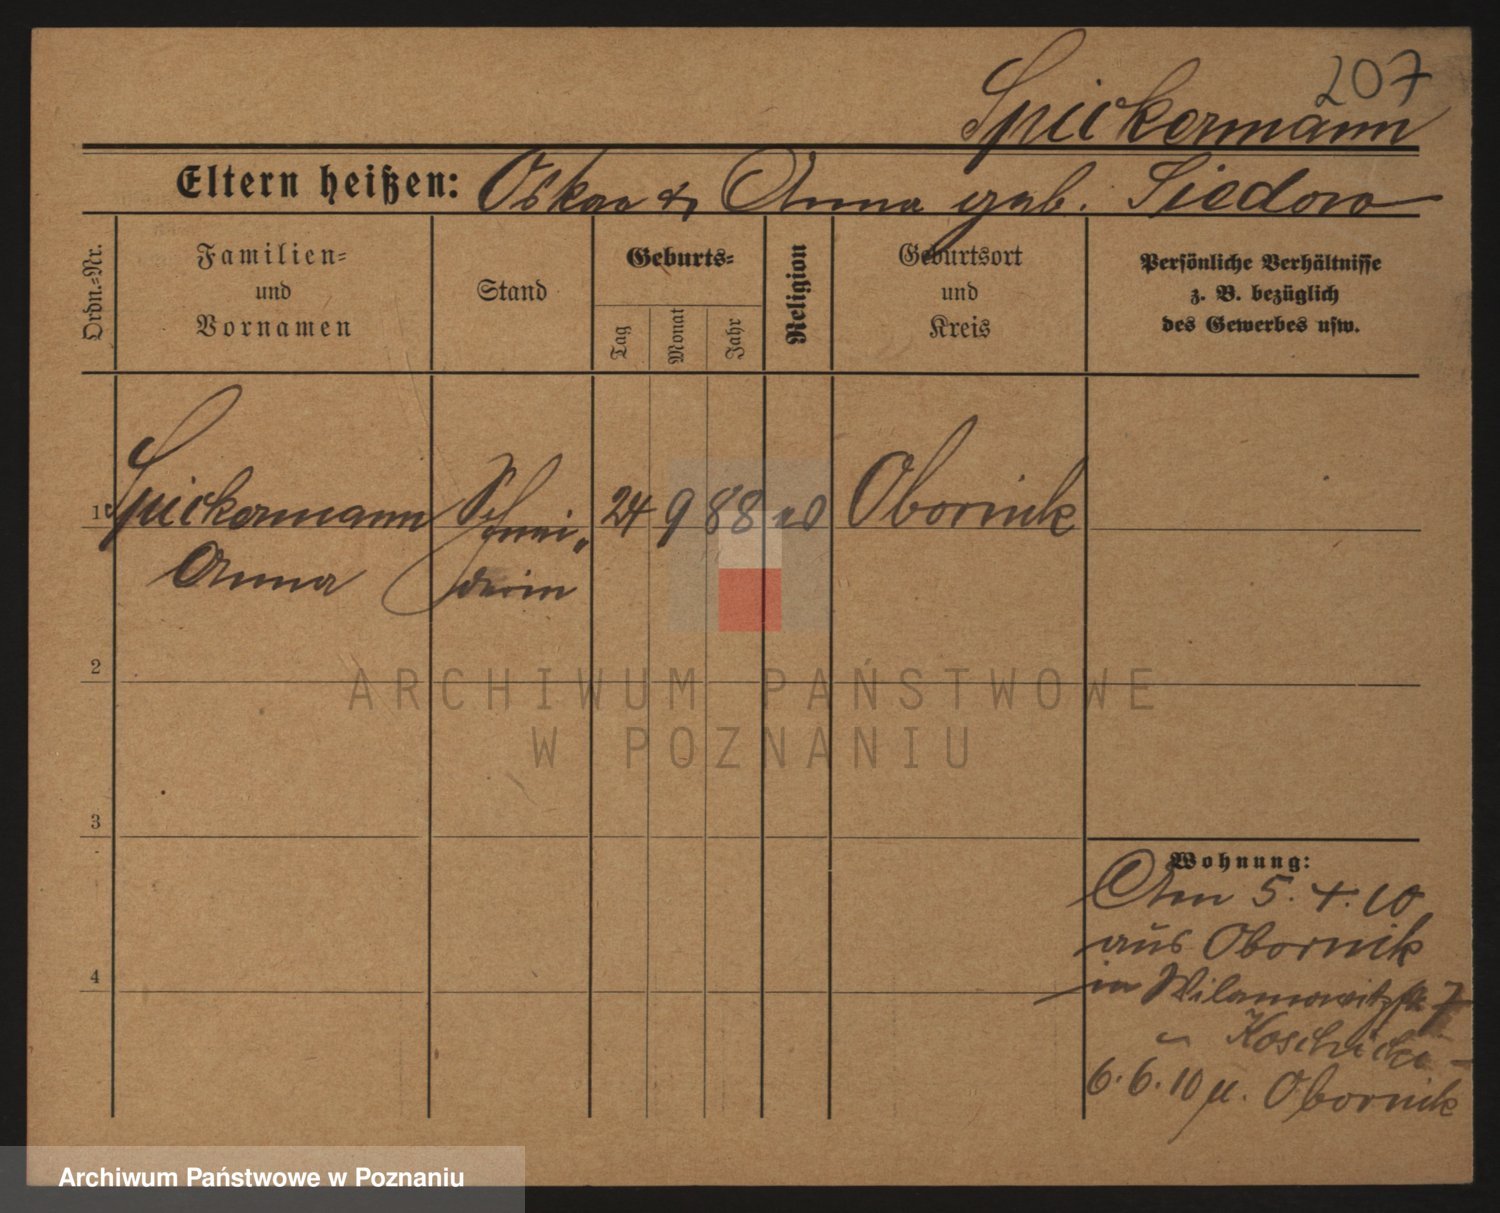 207
Spickermann
Eltern heißen: Oskar & Anna geb. Siedow
Ordn.-Nr.
Familien-
und
Vornamen
Stand
Geburts-
Tag
Monat
Jahr
Religion
Geburtsort
und
Kreis
Persönliche Verhältnisse
z. B. bezüglich
des Gewerbes usw.
1 Spickermann Schnei- 24 9 88 Obornik
Anna derin
2
3
4
Wohnung:
Am 5. 4. 10
aus Obornik
in Wilamowitzstr 7
6. 6. 10 n. Obornik
ARCHIWUM PAŃSTWOWE
W POZNANIU
Archiwum Państwowe w Poznaniu